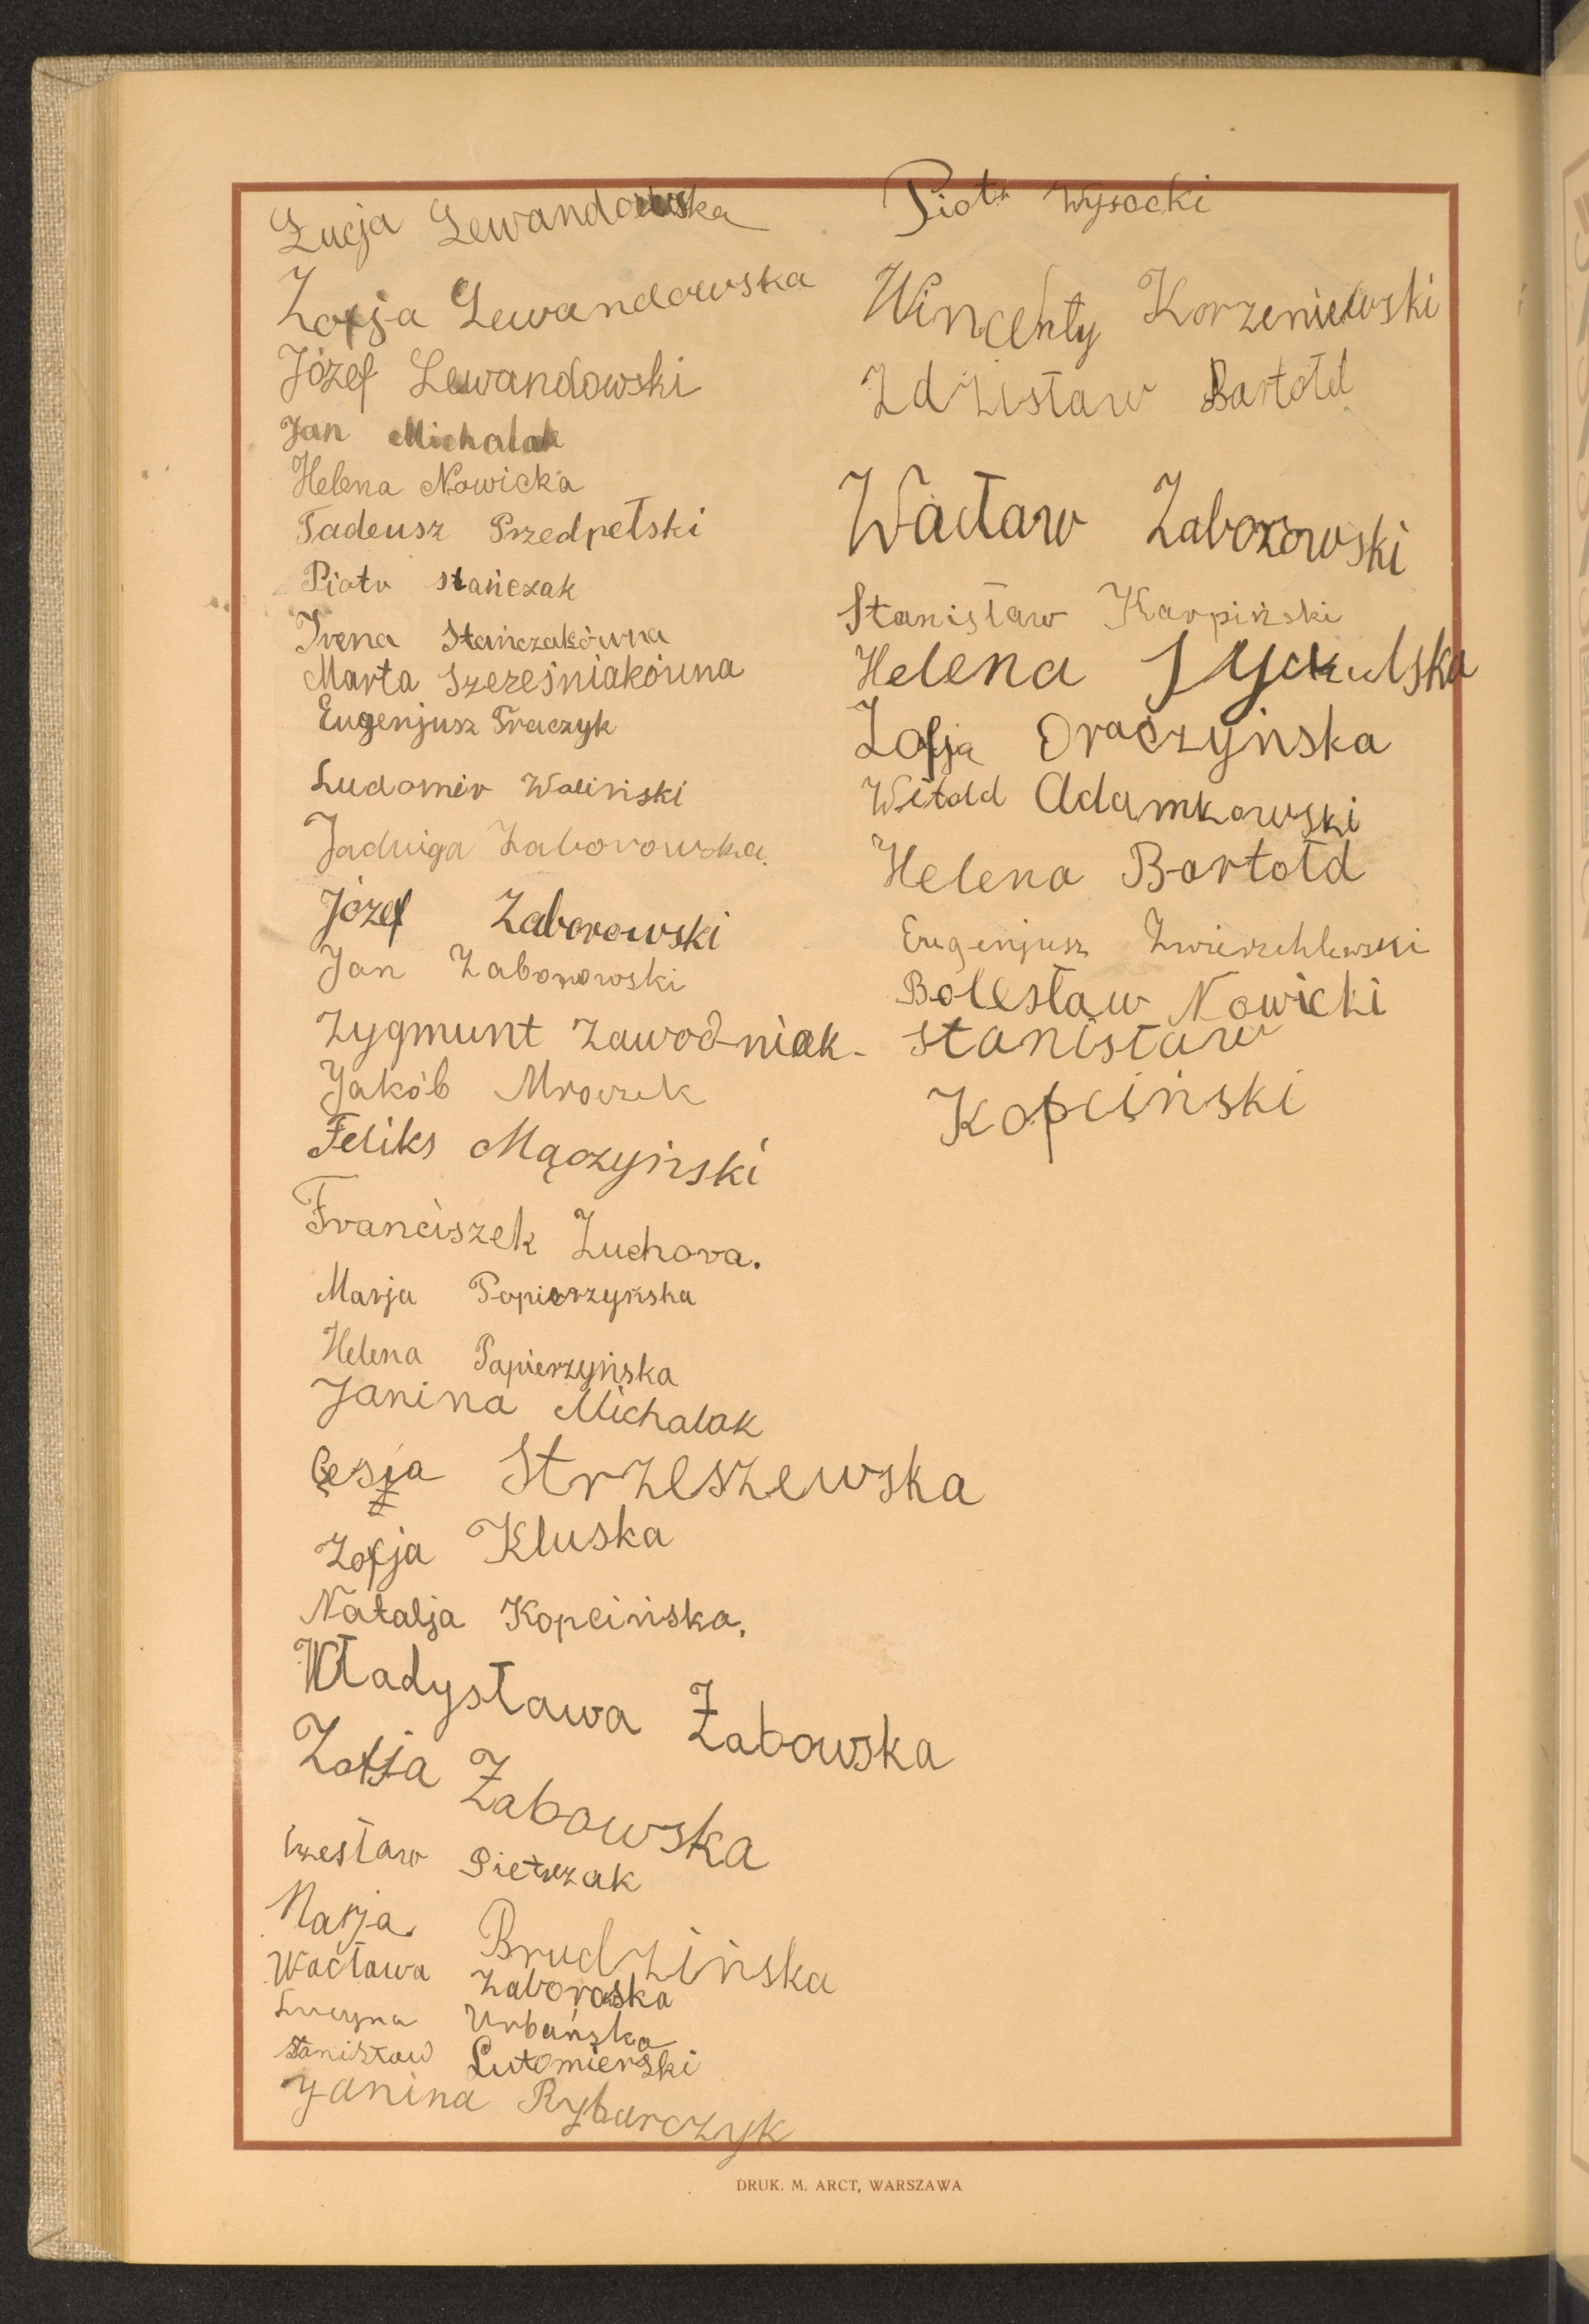 Łucja Lewandowska
Zofja Lewandowska
Józef Lewandowski
Jan Michalak
Helena Nowicka
Tadeusz Przedpełski
Piotr Stańczak
Irena Stańczakówna
Marta Szcześniakówna
Eugenjusz Fraczyk
Ludomir Woliński
Jadwiga Zaborowska.
Józef Zaborowski
Jan Zaborowski
Zygmunt Zawodniak-
Jakób Mroczek
Feliks Mączyński
Franciszek Zuchora.
Marja Papierzyńska
Helena Papierzyńska
Janina Michalak
Cesja Strzeszewska
Zofja Kluska
Natalja Kopcińska.
Władysława Żabowska
Zofja Żabowska
Czesław Pietrzak
Marja Brudzińska
Wacława Zaboroska
Lucyna Urbańska
Stanisław Lutomierski
Janina Rybarczyk
Piotr Wysocki
Wincenty Korzeniewski
Zdzisław Bartołd
Wacław Zaborowski
Stanisław Karpiński
Helena
Zofja Oraczyńska
Witold Adamkowski
Helena Bartołd
Eugenjusz Zwierzchlewski
Bolesław Nowicki
Stanisław
Kopciński
DRUK. M. ARCT, WARSZAWA